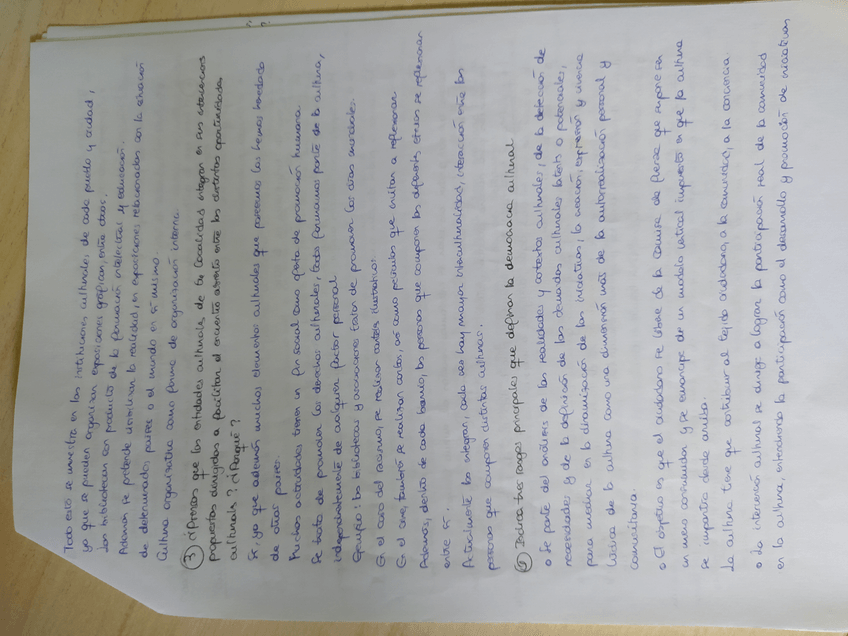 Todo esto se muestra en las instituciones culturales, de cada pueblo y ciudad,
ya que se pueden organizar exposiciones gráficas, entre otras.
Las bibliotecas son producto de la formación intelectual y educación.
Además se pretende visibilizar la realidad, en exposiciones relacionadas con la situación
de determinados países o el mundo en sí mismo.
Cultura organizativa como forma de organización interna.
3 ¿Piensas que las entidades culturales de tu localidad integran en sus intervenciones
propuestas dirigidas a facilitar el encuentro abierto entre las distintas oportunidades
culturales? ¿Porqué?
Sí, ya que además muchos elementos culturales que poseemos los hemos heredado
de otros países.
Muchas actividades tienen un fin social como oferta de promoción humana.
Se tratan de promover los derechos culturales, todos formamos parte de la cultura,
independientemente de cualquier factor personal.
Ejemplo: Las bibliotecas y asociaciones tratan de promover los días mundiales.
En el caso del racismo, se realizan carteles ilustrativos.
En el cine, también se realizan cortos, así como películas que invitan a reflexionar.
Además, dentro de cada barrio, las personas que componen las diferentes etnias se
entre sí.
Actualmente las integran, cada vez hay mayor interculturalidad, interacción entre las
personas que componen distintas culturas.
Indica tres rasgos principales que definan la democracia cultural
• Se parte del análisis de las realidades y contextos culturales, de la detección de
necesidades y de la definición de las demandas culturales latents o potenciales,
para mediar en la dinamización de las iniciativas, la creación, expresión y vivencia
lúdica de la cultura como una dimensión más de la autorrealización personal y
comunitaria.
• El objetivo es que el ciudadano se libere de la camisa de fuerza que supone ser
un mero consumidor y se emancipe de un modelo vertical impuesto en que la cultura
se impartía desde arriba.
La cultura tiene que contribuir al tejido ciudadano, a la comunidad, a la convivencia.
• La intervención cultural se dirige a lograr la participación real de la comunidad
en la cultura, entendiendo la participación como el desarrollo y promoción de iniciativas